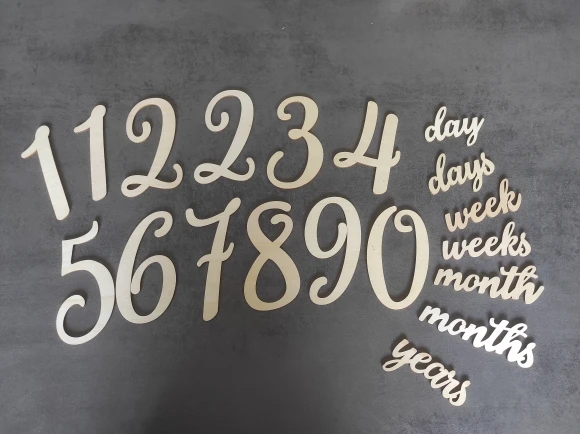 112234
567890
day
days
week
weeks
month
months
years